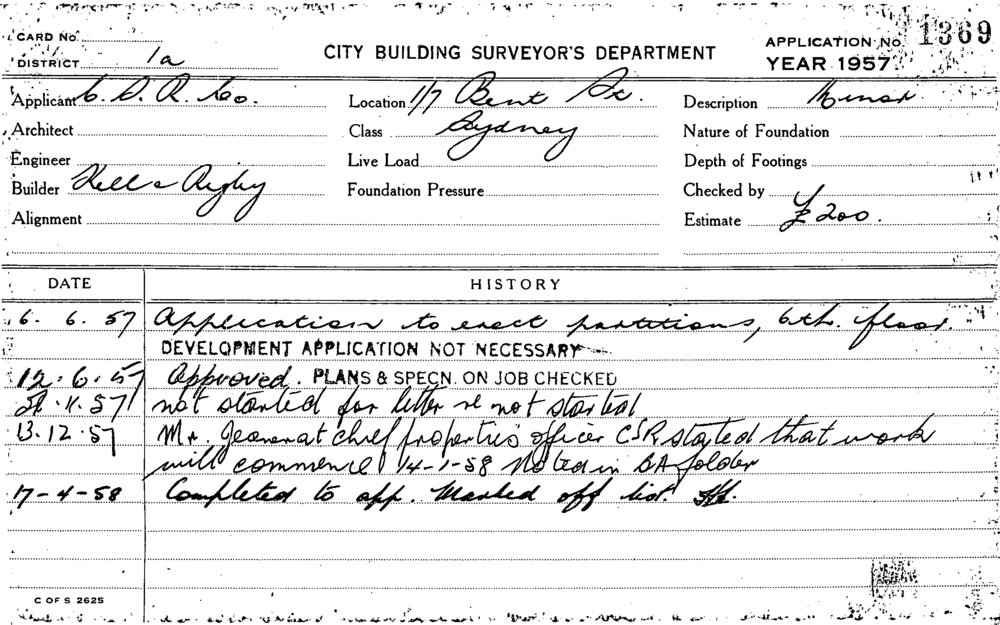 CARD No.
DISTRICT 1a
CITY BUILDING SURVEYOR'S DEPARTMENT
APPLICATION No. 1369
YEAR 1957
Applicant C. S. R. Co. Location 1/7 Bent St. Description Minor
Architect Class Sydney Nature of Foundation
Engineer Live Load Depth of Footings
Builder Kell & Rigby Foundation Pressure Checked by
Alignment Estimate £200.
DATE HISTORY
6. 6. 57 Application to erect partitions, 6th. floor.
DEVELOPMENT APPLICATION NOT NECESSARY
12.6.57 Approved. PLANS & SPECN. ON JOB CHECKED
.11.57 not started for letter re not started
13.12.57 Mr. chief properties officer CSR stated that work
will commence 14-1-58 Noted in BA folder
17-4-58 Completed to app. Marked off list.
C OF S 2625